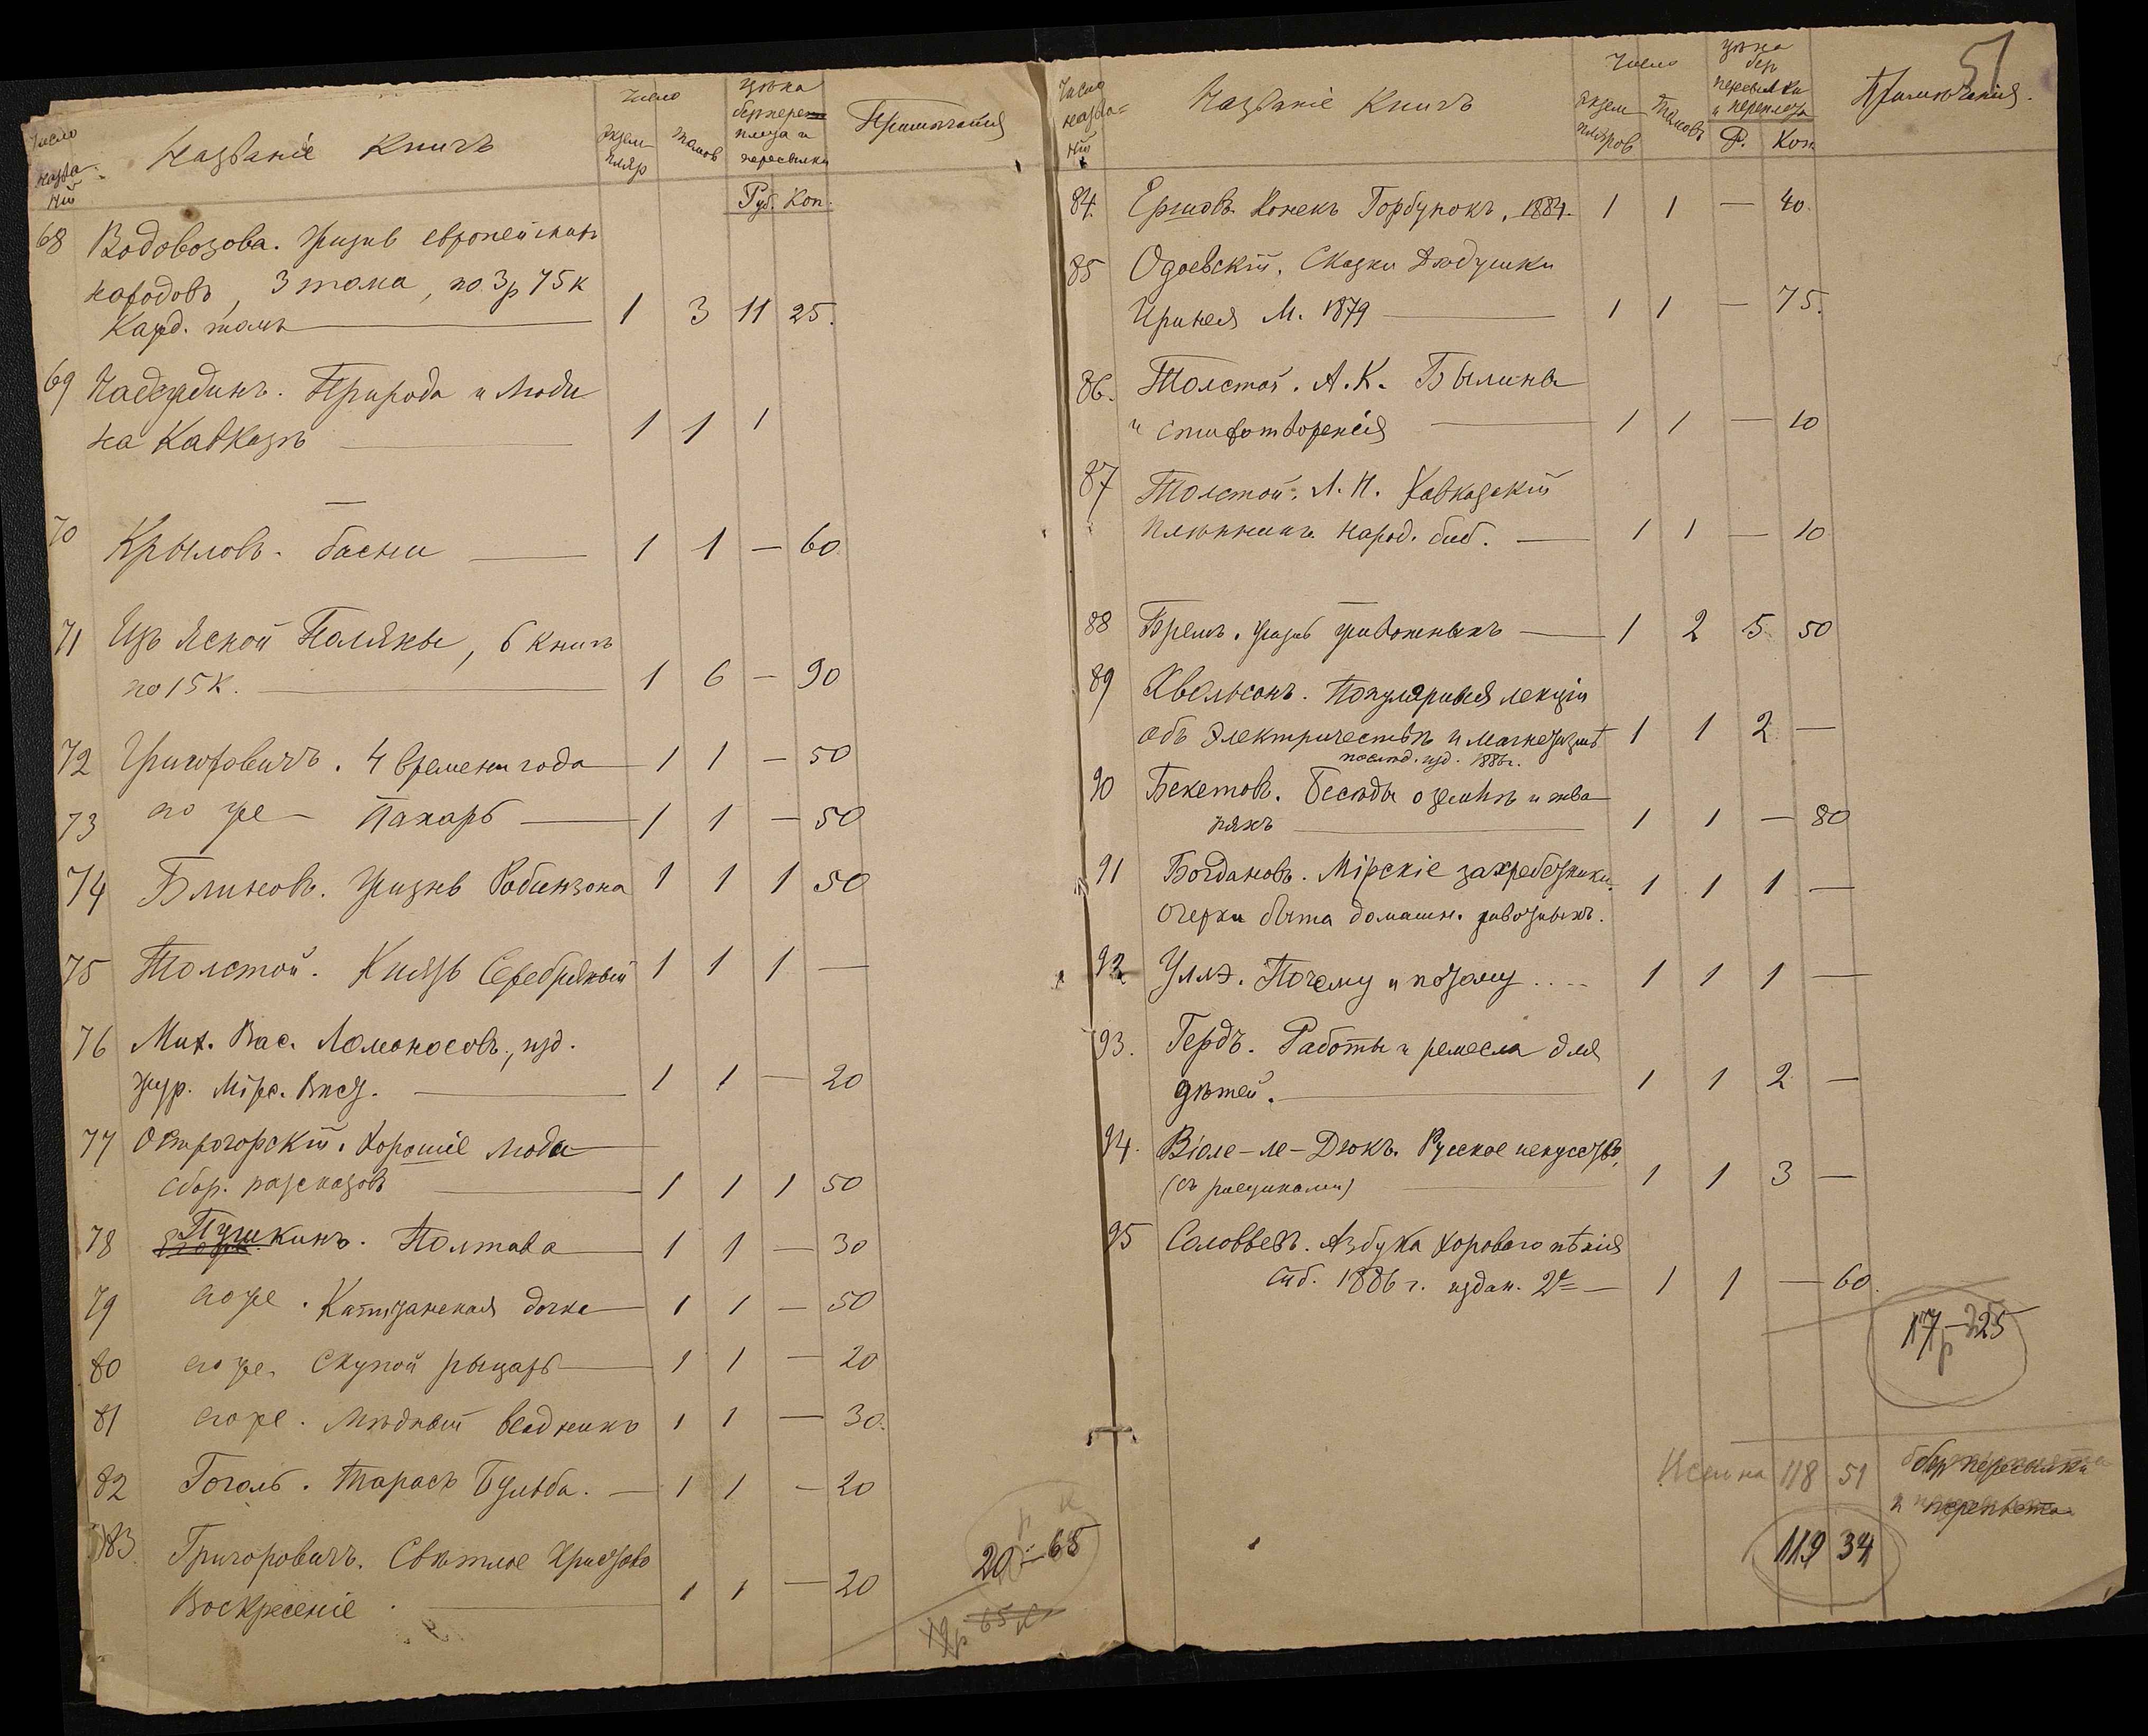 Число названій
Названіе Книгъ
Число
экземпляр
томов
Цѣна без переплета и пересылки
Руб. Коп.
Примѣчанія
68 Водовозова. Жизнь европейскихъ
народовъ, 3 тома, по 3р 75к
Кажд. томъ 1 3 11 25.
69 Надеждинъ. Природа и люди
на Кавказѣ 1 1 1
70 Крыловъ. басни 1 1 — 60
71 Изъ Ясной Поляны, 6 книгъ
по 15 к. 1 6 — 90
72 Григоровичъ. 4 времени года 1 1 — 50
73 его же — Пахарь 1 1 — 50
74 Блиновъ. Жизнь Робинзона 1 1 1 50
75 Толстой. Князь Серебряный 1 1 1 —
76 Мих. Вас. Ломоносовъ, изд.
жур. Мірс. Вѣст. 1 1 — 20
77 Острогорскій. Хорошіе люди
сбор. разсказовъ 1 1 1 50
78 Пушкинъ. Полтава 1 1 — 30
79 его же. Капитанская дочка 1 1 — 50
80 его же. Скупой рыцарь 1 1 — 20
81 его же. Мѣдный всадникъ 1 1 — 30.
82 Гоголь. Тарасъ Бульба. 1 1 — 20
83 Григоровичъ. Свѣтлое Христово
Воскресеніе 1 1 — 20
р к
20 — 65
65 к
51
Число названій
Названіе Книгъ
Число
экземпляров
томовъ
Цѣна без пересылки и переплета
Р. Коп.
Примѣчанія.
84. Ершовъ. Конекъ Горбунокъ, 1884. 1 1 — 40.
85 Одоевскій. Сказки дѣдушки
Иринея М. 1879 1 1 — 75.
86. Толстой. А. К. Былины
и стихотворенія 1 1 — 10
87 Толстой. Л. Н. Кавказскій
плѣнникъ народ. биб. 1 1 — 10
88 Бремъ. Жизнь животныхъ 1 2 5 50
89 Хвольсонъ. Популярныя лекціи
объ электричествѣ и магнетизмѣ 1 1 2 —
послѣд. изд. 1886 г.
90 Бекетовъ. Бесѣды о землѣ и тва
ряхъ 1 1 — 80
91 Богдановъ. Мірскіе захребетники. 1 1 1 —
очерки быта домашн. животныхъ.
92 Уллэ. Почему и потому .... 1 1 1 —
93. Гердъ. Работы и ремесла для
дѣтей. 1 1 2 —
94. Віоле-ле-Дюкъ. Русское искусство,
(съ рисунками) 1 1 3 —
95 Соловьевъ. Азбука хорового пѣнія
Спб. 1886 г. издан. 2е 1 1 — 60.
17 р — 25
118 51 без пересылки
и переплета
119 34